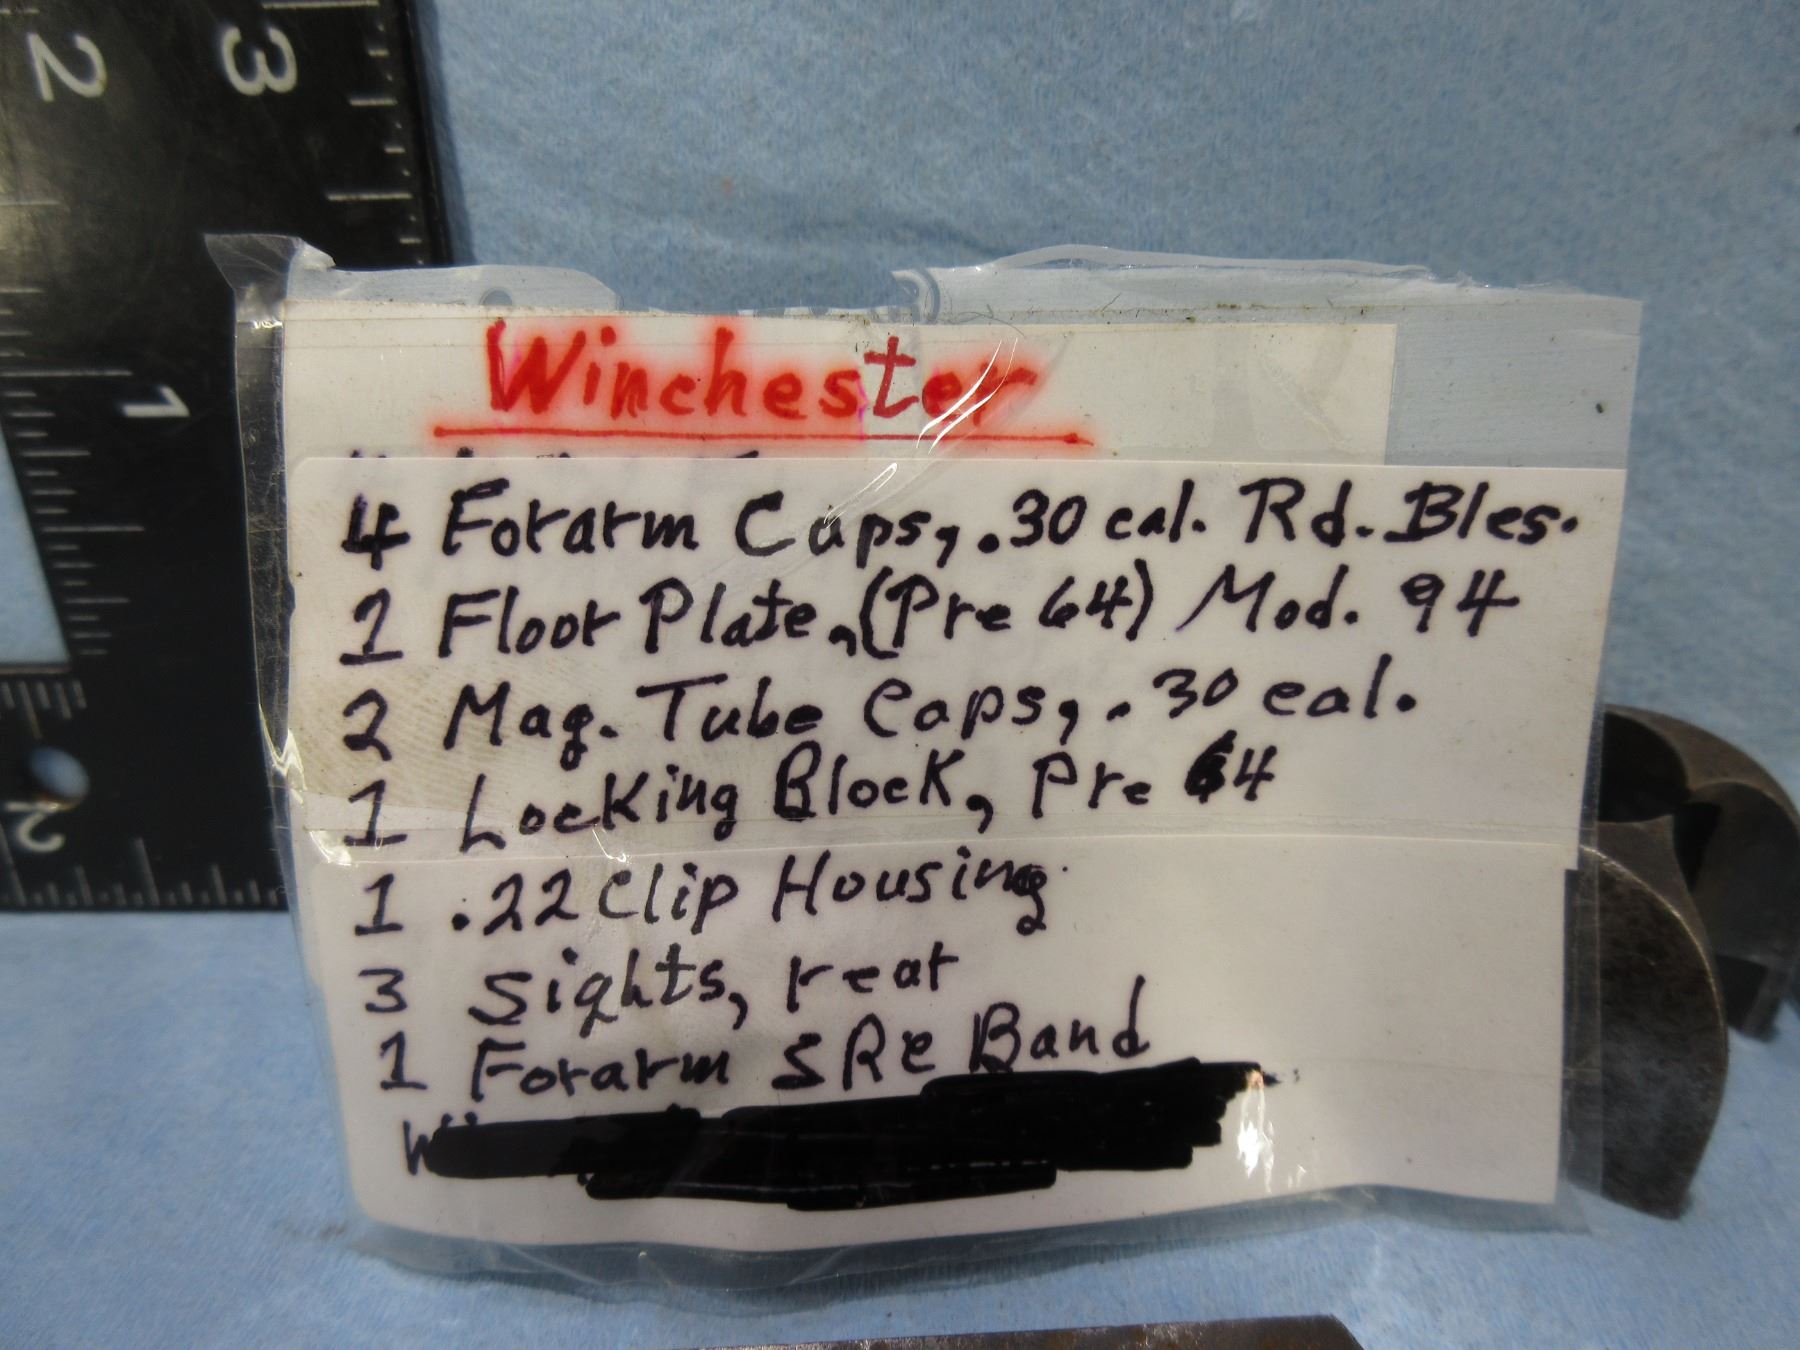 2
3
1
2
Winchester
4 Forarm Caps, .30 cal. Rd. Bles.
1 Floor Plate, (Pre 64) Mod. 94
2 Mag. Tube Caps, .30 cal.
1 Locking Block, Pre 64
1 .22 Clip Housing
3 Sights, rear
1 Forarm SRC Band